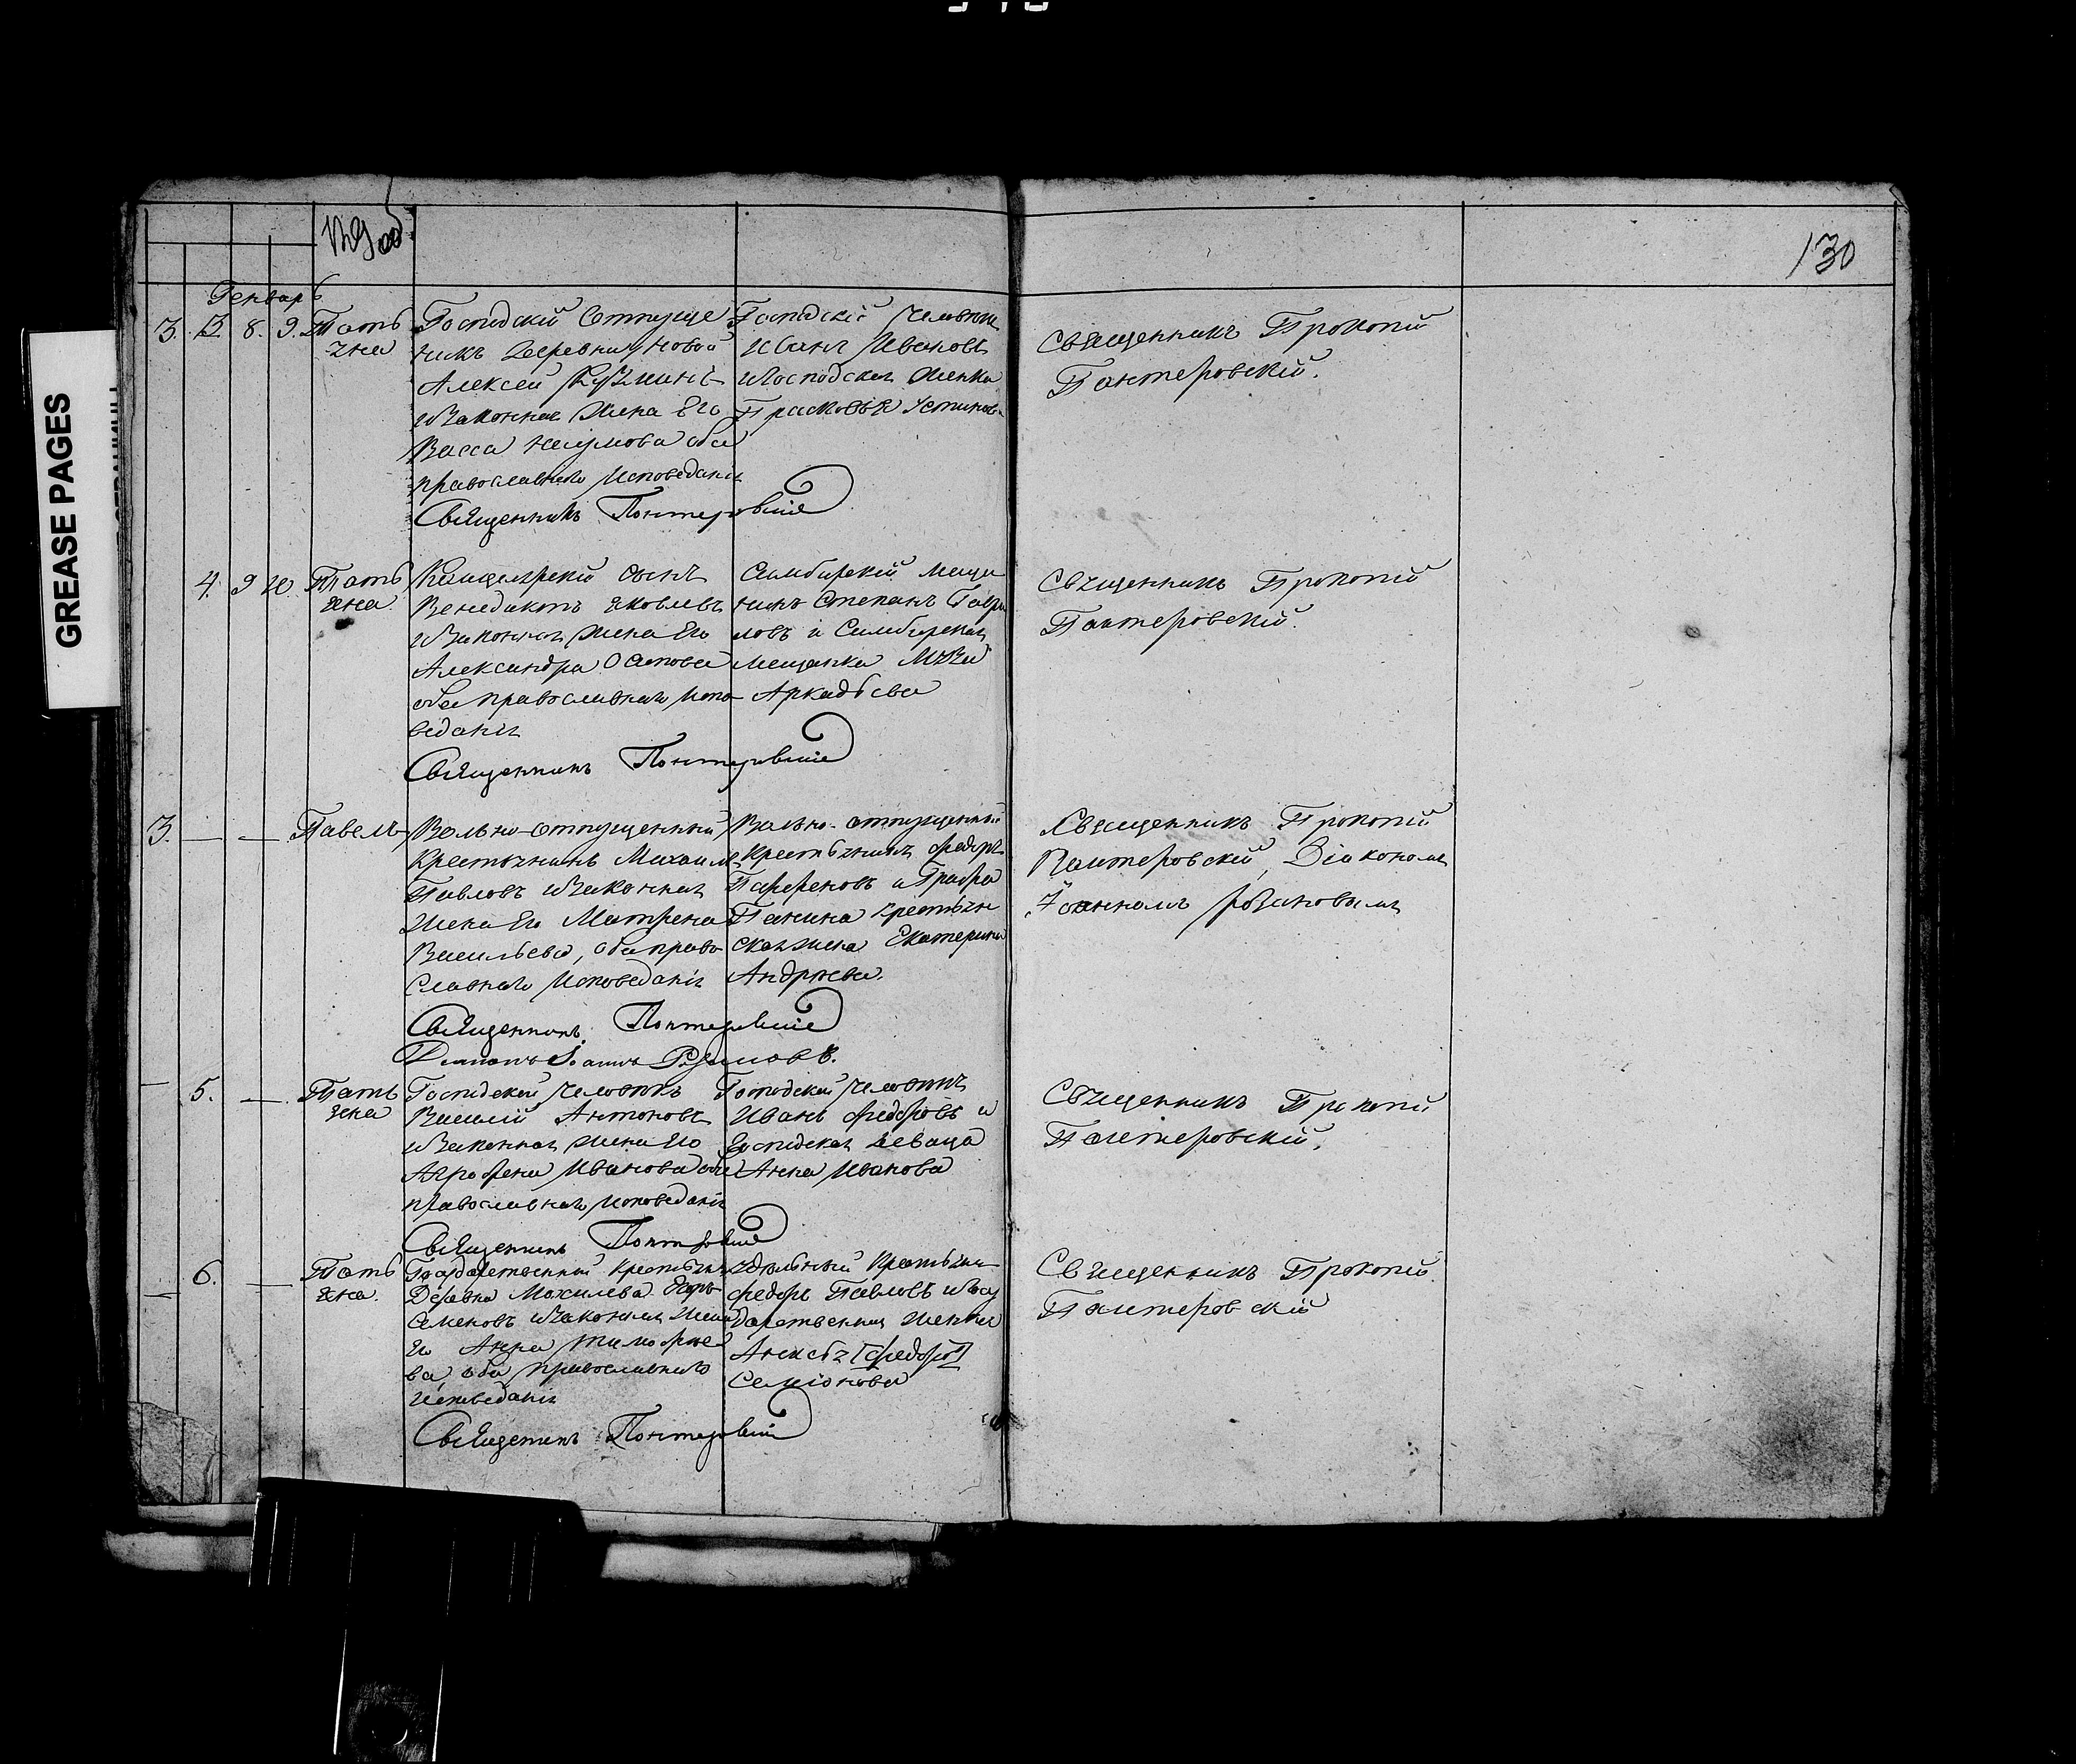 GREASE PAGES
130
Генварь
3. 3. 8. 9. Тать
яна
Господский
деревни Новой
Алексей Кузминъ
и законная жена Его
Васса Наумова оба
православнаго исповеданія
Священникъ Пантеровскій
Иванъ Ивановъ
и Господская женка
Прасковья Устинова
Священникъ Прокопій
Пантеровскій.
4. 9 10. Тать
яна
Канцелярскій сынъ
Венедиктъ Яковлевъ
и законная жена Его
Александра Осипова
оба православнаго испо-
веданія
Священникъ Пантеровскій
Симбирскій меща
нинъ Степанъ Гаври
ловъ и Симбирская
мещанка
Аркадьева
Священникъ Прокопій
Пантеровскій.
3. — — Павелъ
Вольно-отпущенный
Крестьянинъ Михаилъ
Павловъ и законная
жена Его Матрена
Васильева, оба право
славнаго исповеданія
Священникъ Пантеровскій
Діаконъ Іоаннъ Розановъ.
Вольно-отпущенный
Крестьянинъ Федоръ
Парфеновъ и Графа
Панина крестьян
ская жена Екатерина
Андреева.
Священникъ Прокопій
Пантеровскій, Діакономъ
Іоанномъ Розановымъ
5. — Тать
яна
Господский человекъ
Василій Антоновъ
и законная жена Его
Аграфена Иванова оба
православнаго исповеданія
Священникъ Пантеровскій
Господский человекъ
Иванъ Федоровъ и
Господская девица
Анна Иванова
Священникъ Прокопій
Пантеровскій.
6. — Тать
яна.
Государственный крестьянинъ
Семеновъ и законная жена
Его Анна Тимофее
ва, оба православнаго
исповеданія
Священникъ Пантеровскій
Удельный крестьянинъ
Федоръ Павловъ и Госу
дарственная женка
[Федоро]
Семіонова
Священникъ Прокопій
Пантеровскій